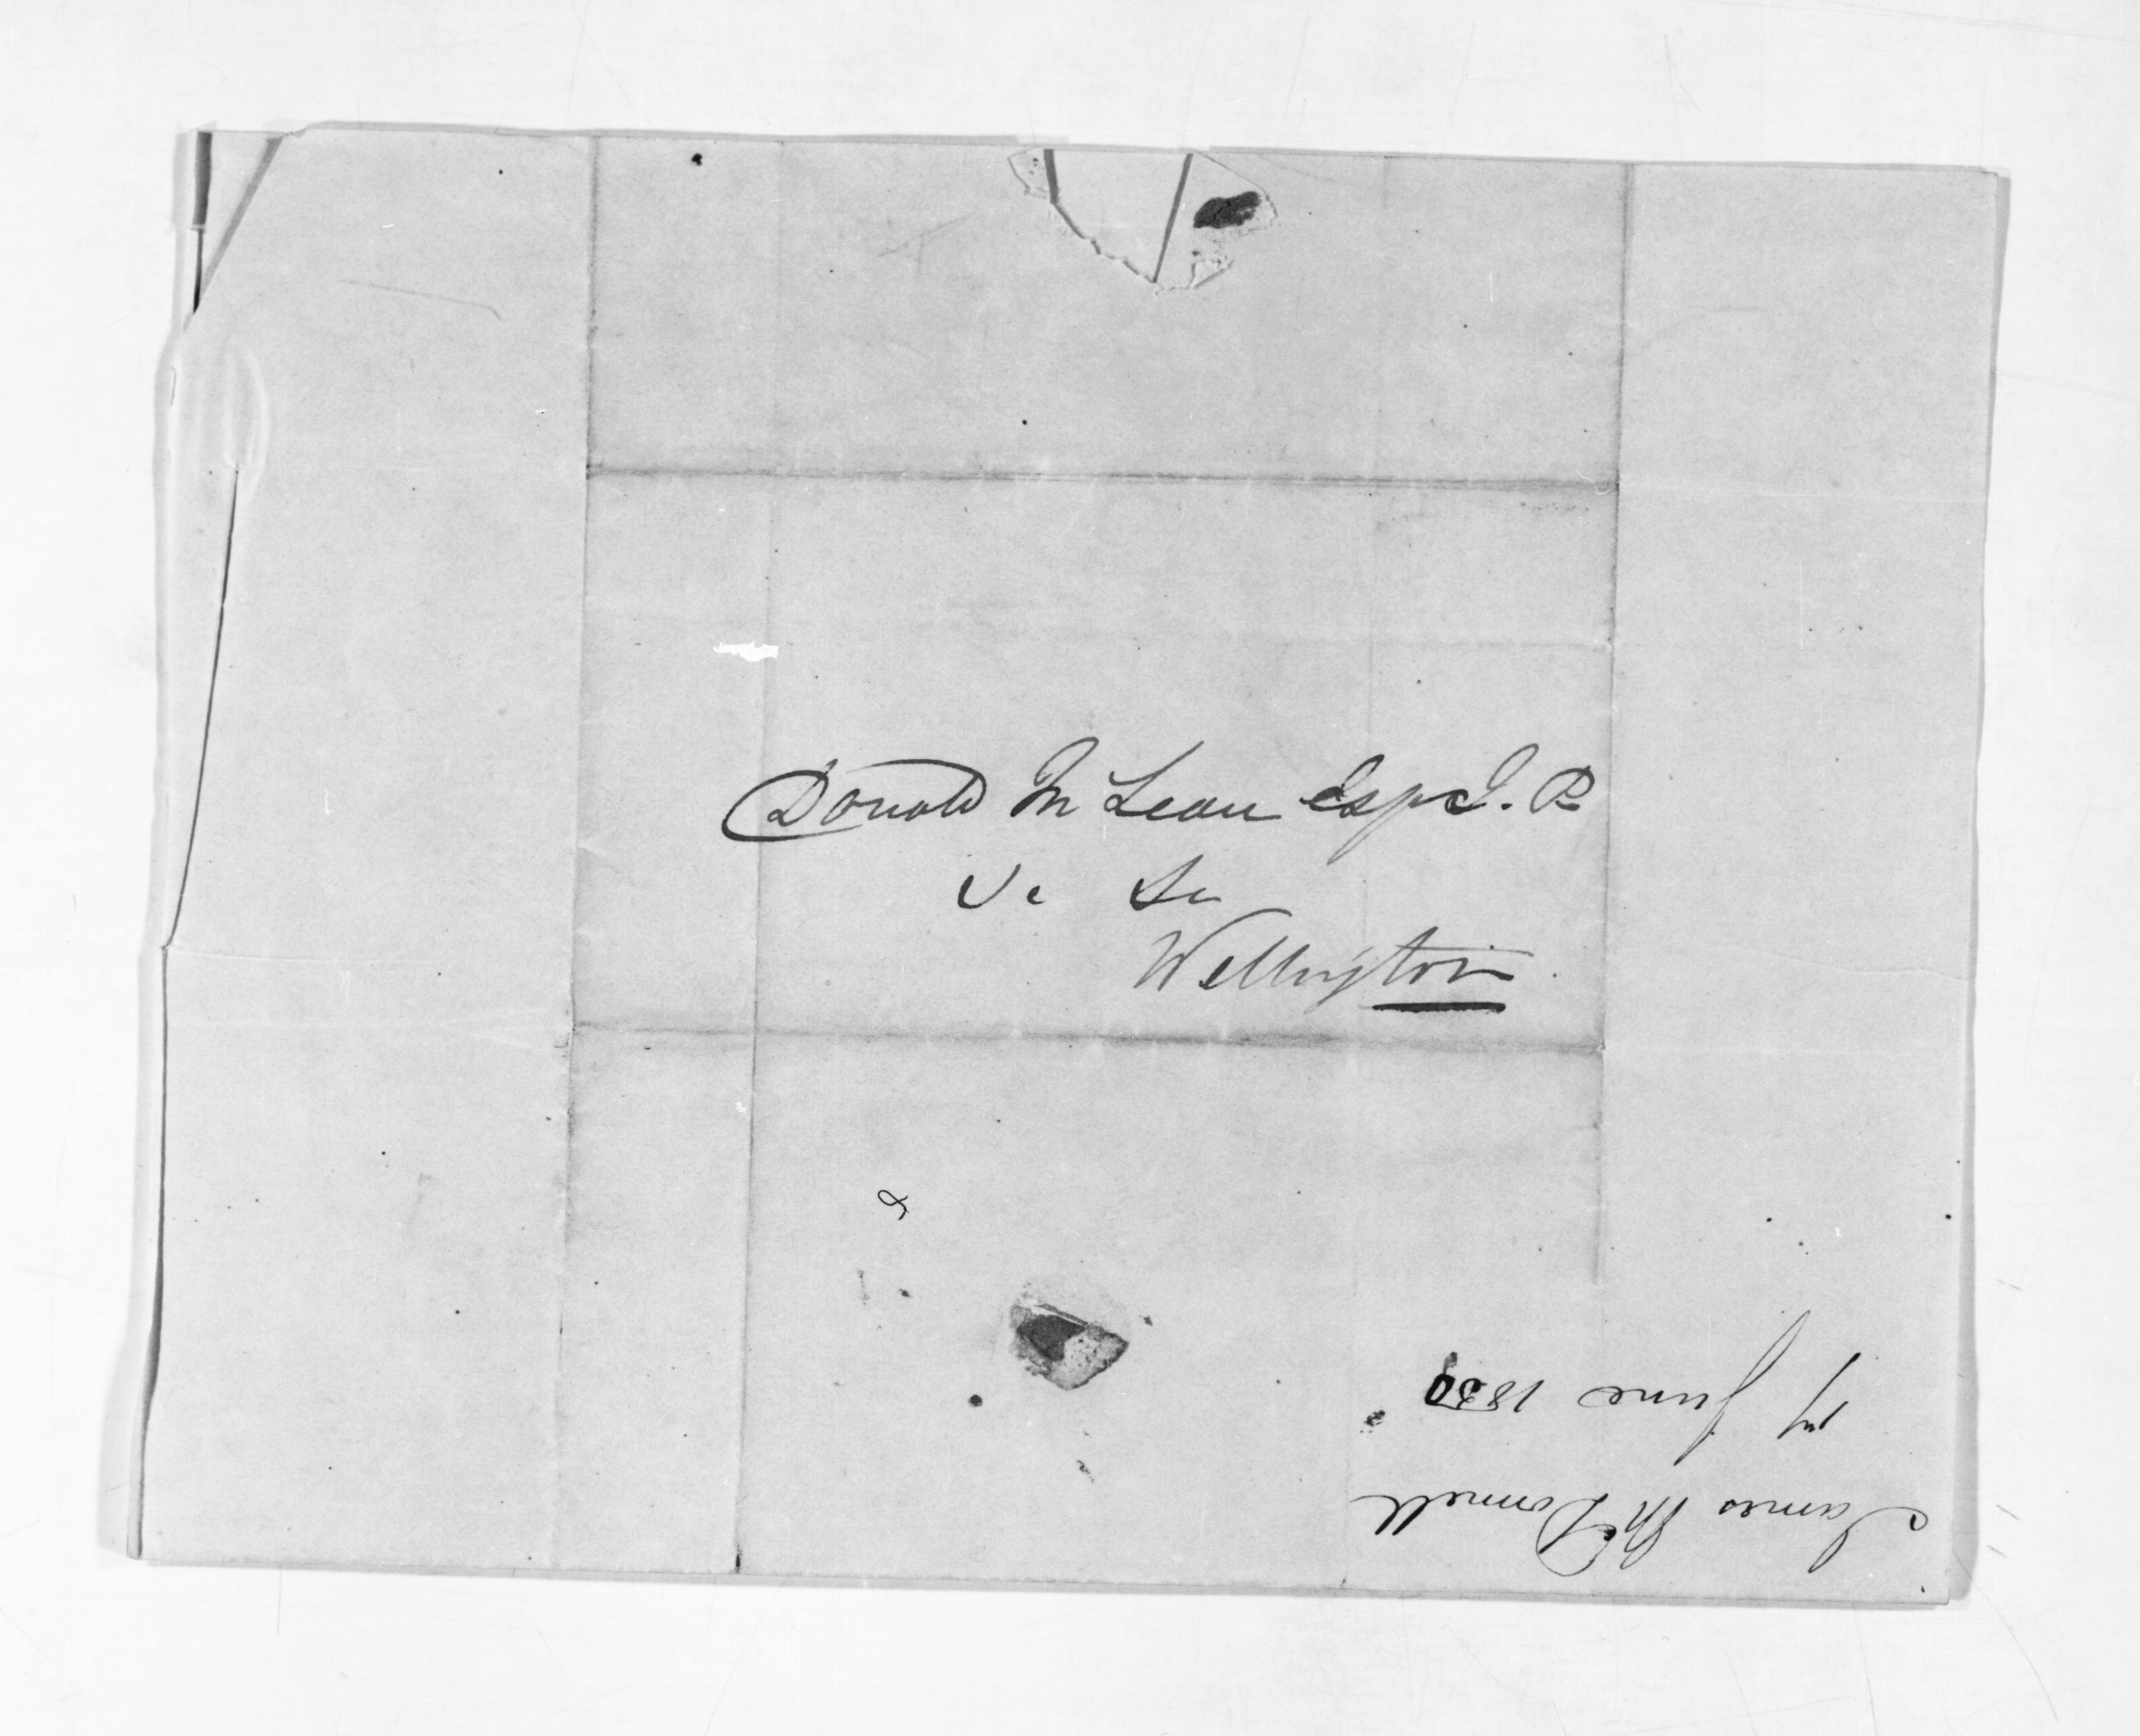 Donald McLean Esq J. P
&c &c
Wellington
James McDonnell
June 1850